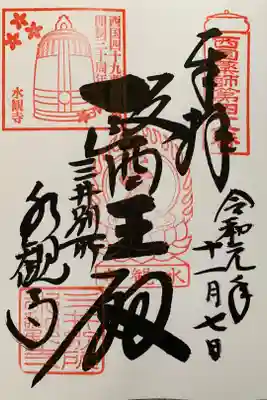 奉拝
令和元年
十一月七日
醫王殿
三井別所
水観寺
西国四十九
開創三十周年
水観寺
西国薬師第四十八番
水観寺